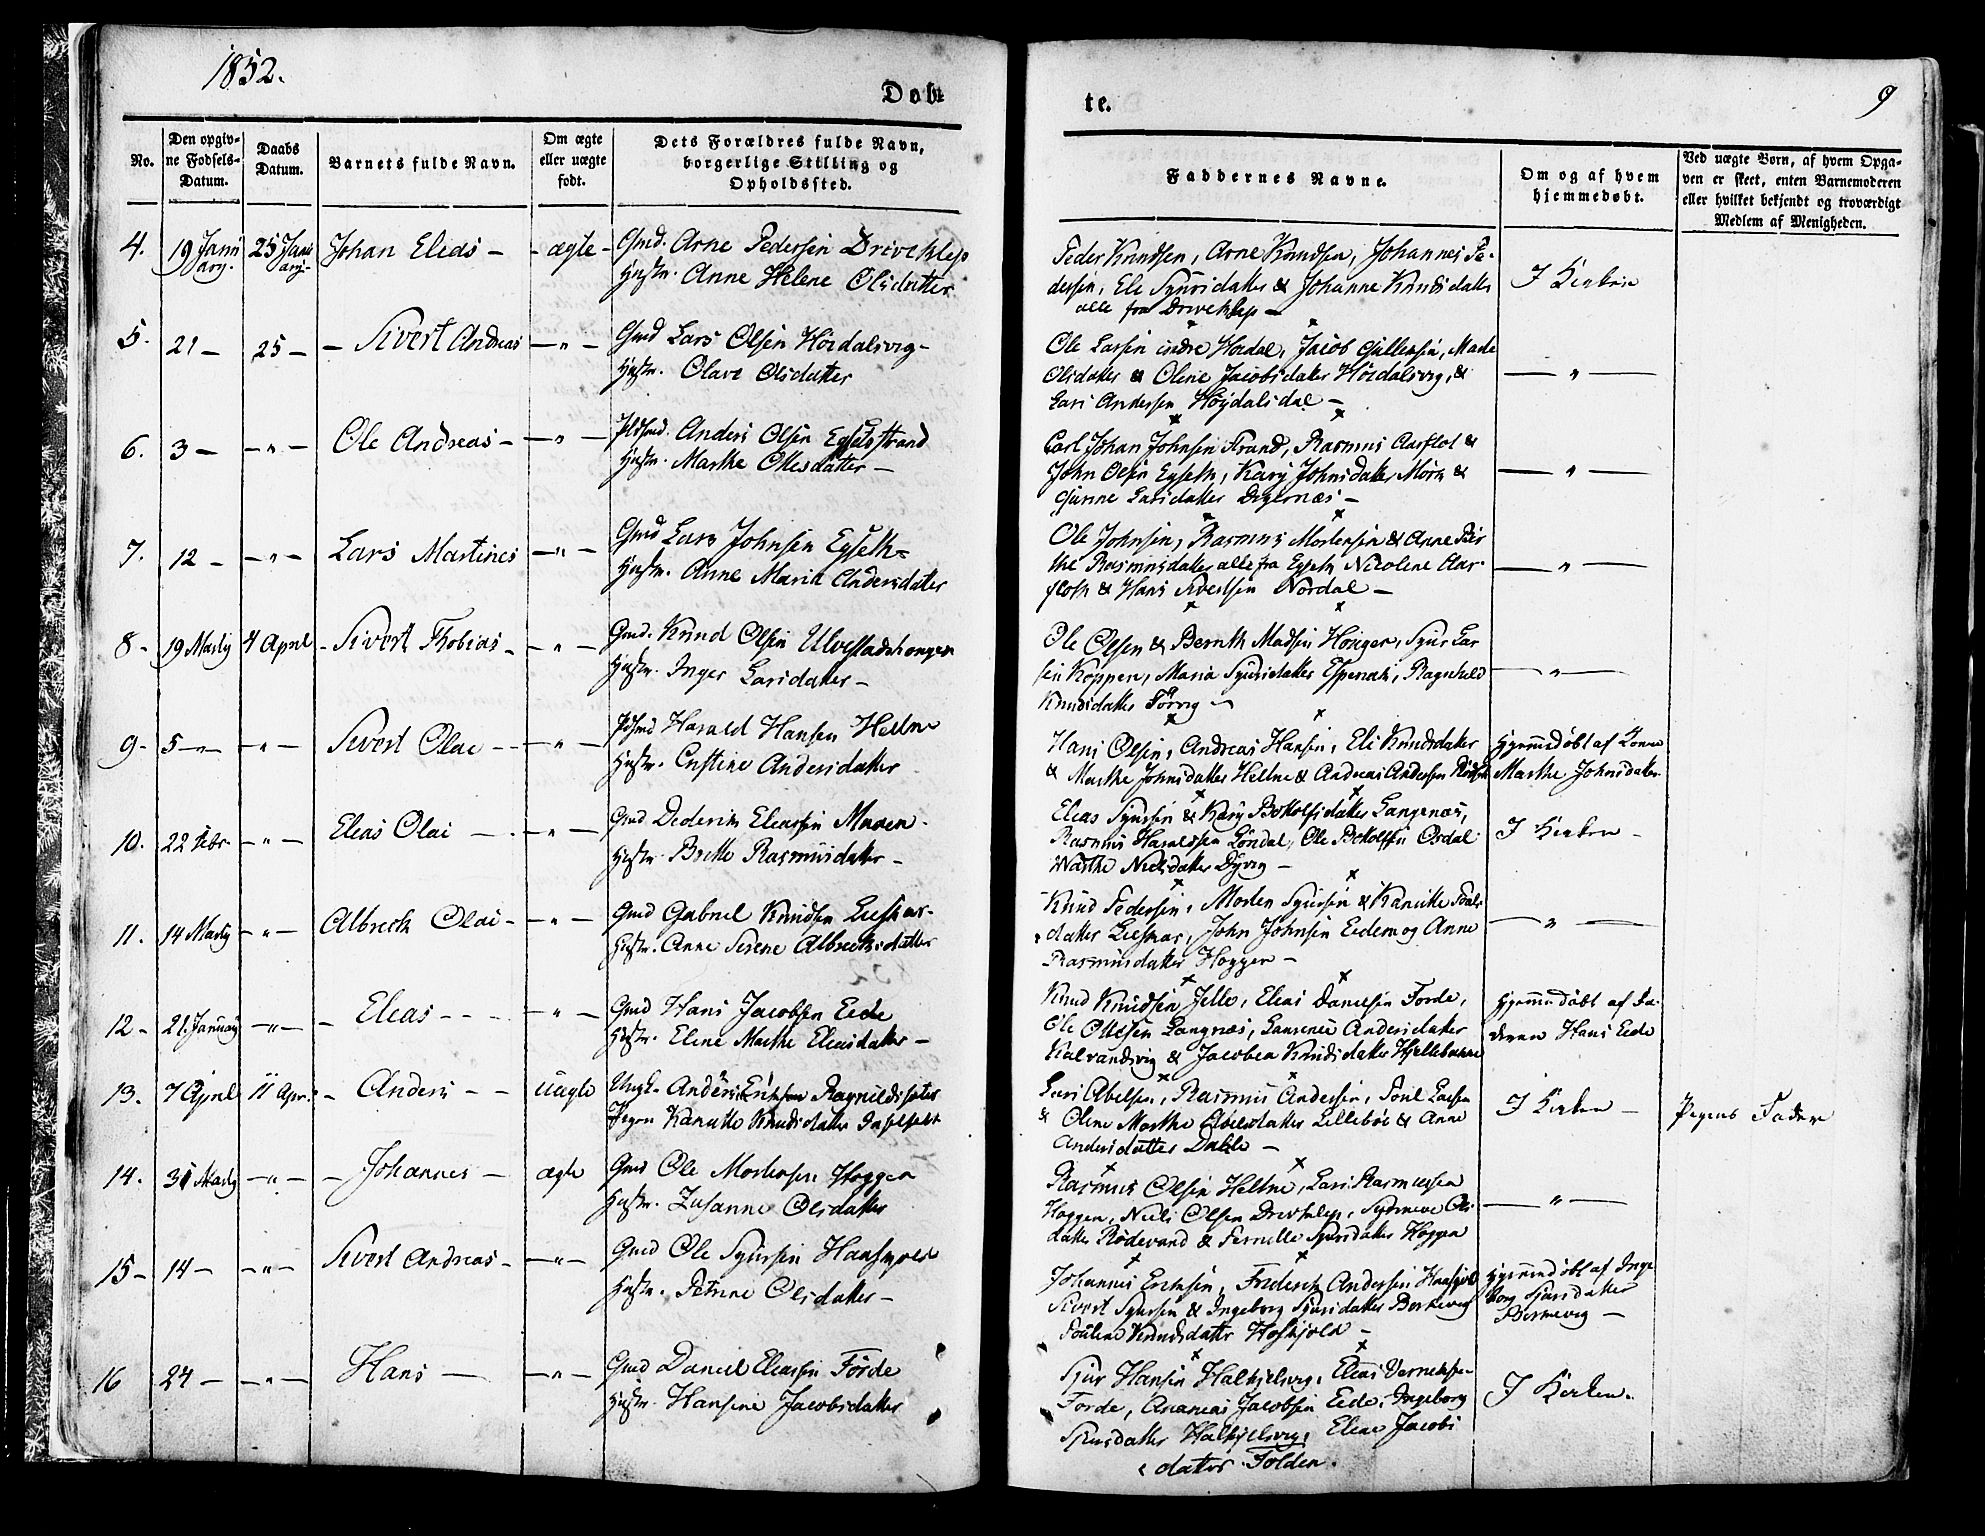 1852.
Døb-
te.
9
No.
Den opgiv-
ne Fødsels-
Datum.
Daabs
Datum.
Barnets fulde Navn.
Om ægte
eller uægte
født.
Dets Forældres fulde Navn,
borgerlige Stilling og
Opholdssted.
Faddernes Navne.
Om og af hvem
hjemmedøbt.
Ved uægte Børn, af hvem Opga-
ven er skeet, enten Barnemoderen
eller hvilket bekjendt og troværdigt
Medlem af Menigheden.
4. 19 Janu 25 Janu Johan Elias – – ægte – Gmd. Arne Pedersen Driveklep
ary. ary. Hustr. Anne Helene Olsdatter
Peder Knudsen, Arne Knudsen, Johannes Pe-
dersen, Ele Sjursdatter & Johanne Knudsdatter
alle fra Driveklep –
I Kirken
5. 21 – 25 – – Sivert Andreas – " – Gmd Lars Olsen Høidalsvig –
Hustr. Olave Olsdatter
Ole Larsen indre Høidal, Jacob Gullersen, Made
Olsdatter & Oline Jacobsdatter Høidalsvig, &
Lars Andersen Höydalsdal –
– " –
6. 3 – – " – Ole Andreas – – " – Anders Olsen Eysetstrand
Hustr. Marthe Ottesdatter –
Carl Johan Johnsen Strand, Rasmus Aarflot &
John Olsen Eyseth, Kary Johnsdatter Mork &
Gunne Larsdatter Digernæs –
– " –
7. 12 – – " – Lars Martines – " – Gmd Lars Johnsen Eyseth
Hustr. Anne Maria Andersdatter
Ole Johnsen, Rasmus Mortensen & Anne Ber
the Rasmusdatter alle fra Eyseth Nicoline Aar-
floth & Hans Sivertsen Nordal –
– " –
8 – 19 Marty 4 April – Sivert Thobias – – " – Gmd. Knud Olsen Ulvestadhougen
Hustr. Inger Larsdatter –
Ole Olsen & Bernth Madsen Hougen, Sjur Lar
sen Koppen, Maria Sjursdatter Espenak, Ragnhild
Knudsdatter Förvig –
– " –
9 – 5 – " – – " – Sivert Olai – – " – Harald Hansen Hellne
Hustr. Cristine Andersdatter
Hans Olsen, Andreas Hansen, Eli Knudsdatter
& Marthe Johnsdatter Hellne & Andreas Andersen
Hjemmedøbt af Konen
Marthe Johnsdatter
10. 22 Febr – " – Elias Olai – – " – Gmd Dederik Eliassen Maren
Hustr. Brithe Rasmusdatter –
Elias Sjursen & Kary Botolfsdatter Langenæs,
Rasmus Haraldsen Löndal, Ole Botolfsen Osdal
Marthe Nielsdatter Dyvig –
I Kirken –
11. 14 Marty – " – Albrecth Olai – – " – Gmd Gabriel Knudsen Lieskar –
Hustr. Anne Serene Albrecthsdatter
Knud Pedersen, Morten Sjursen & Kanutte Pals
datter Lieskar, John Johnsen Eidem og Anne
Rasmusdatter Hoggen –
– " –
12 – 21 January – " – – Elias – – – – " – Gmd Hans Jacobsen Eide
Hustr. Elene Marthe Eliasdatter –
Knud Knudsen Jelle, Elias Danielsen Forde,
Ole Ottesen Langnæs, Laurense Andersdatter
Kalvandsvig & Jacobea Knudsdatter Hjellebakke
Hjemmedøbt af Fa-
deren Hans Eide
13. 7 April 11 Apr. – Anders – – uægte Ungk. Anders Eriksen Ragnildssæter
Pigen Kanutte Knudsdatter
Lars Abelsen, Rasmus Andersen, Poul Larsen
& Oline Marthe Abelsdatter Lillebøe & Anne
Andersdatter Dahle –
I Kirken – Pigens Fader
14. 31 Marty – " – – Johannes – ægte Gmd Ole Mortensen Hoggen
Hustr. Zusanne Olsdatter
Rasmus Olsen Hellne, Lars Rasmussen
Hoggen, Niels Olsen Driveklep, Synneve Ols
datter Rödevand & Pernille Sjursdatter Hoggen
– " –
15 – 14 – – " – Sivert Andreas – – " – Gmd Ole Sjursen
Hustr. Petrine Olsdatter –
Johannes Erichsen, Frederich Andersen
Sivert Sjursen & Ingeborg Sjursdatter Berkevig
Pouline Knudsdatter –
Hjemmedøbt af Inge
borg Sjursdatter
Berkevig –
16 24 – – " – Hans – – " – Gmd Daniel Eliassen Förde
Hustr. Hansine Jacobsdatter
Sjur Hansen Halkjelsvig, Elias
Forde, Ananias Jacobsen Eide, Ingeborg
Sjursdatter Halkjelsvig, Elene Jacobs
datter Folden.
I Kirken.